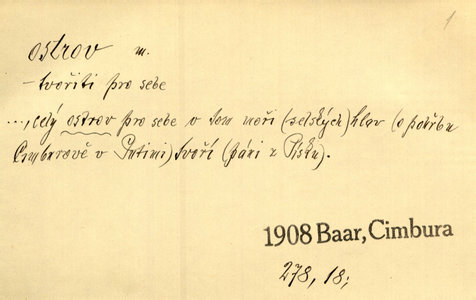 1
ostrov m.
- tvořiti pro sebe
..., celý ostrov pro sebe v tom moři (selských) hlav (o pohřbu
Cimburově v Putimi) tvoří (páni z Písku).
1908 Baar, Cimbura
278, 18;